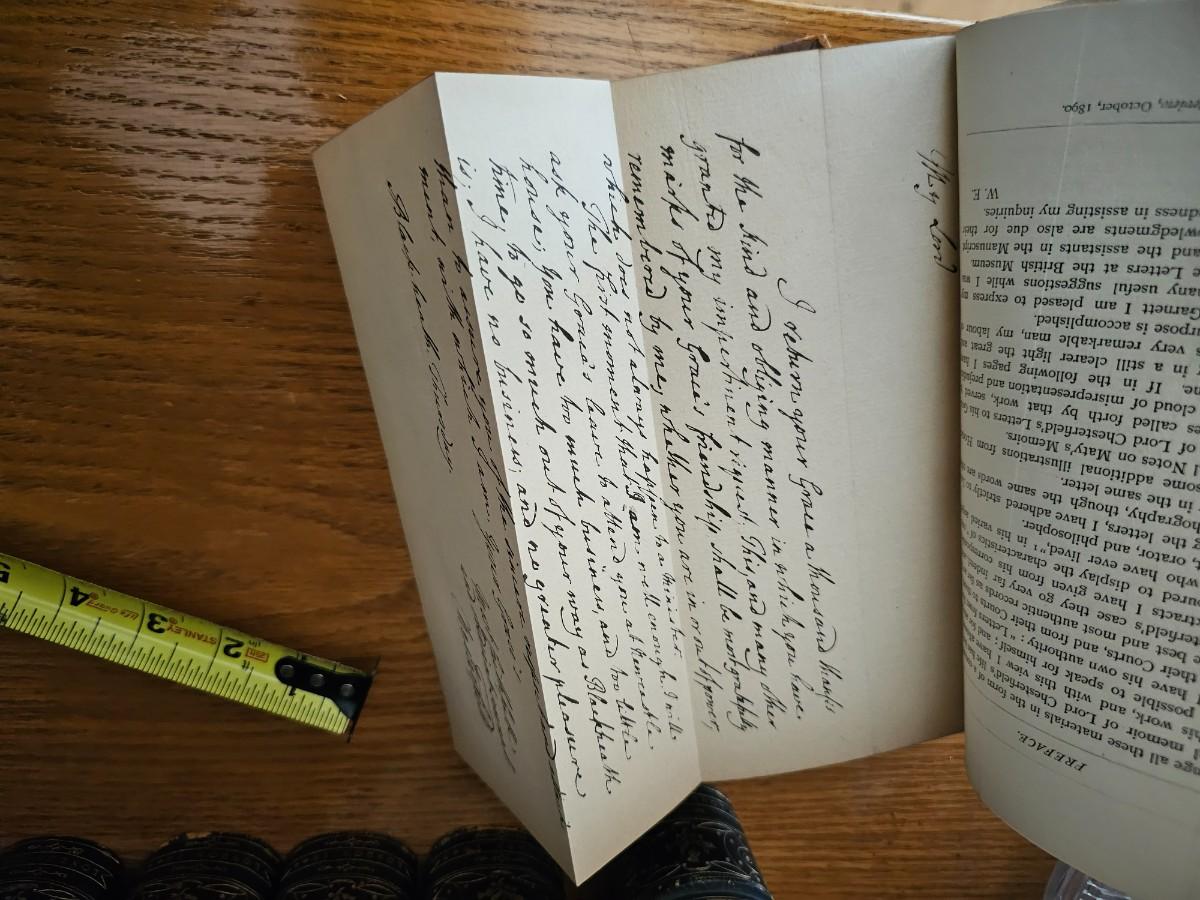 My Lord
I return your Grace a thousand thanks
for the kind and obliging manner in which you have
granted my impertinent request. This and many other
marks of your Grace's friendship shall be most gratefully
remembered by me, whether you are in or out of power,
which does not always happen to a minister.
The first moment that I am well enough, I will
ask your Grace's leave to attend you at Newcastle
house; you have too much business, and too little
time, to go so much out of your way as Blackheath
is; I have no business, and no greater pleasure
than to assure you of the
ment, with which I am, Your
Blackheath.
PREFACE.
age all these materials in the form of
l memoir of Lord Chesterfield
his work, and with this view I have
possible to speak for himself;
have his own authority: "Letters
their Courts, and from
best and most authentic records
erfield's case they go very far
xtracts I have given from his
ured to display the characteristics of
who have ever lived," in his varied
t, orator, and philosopher.
g the letters, I have adhered strictly
hography, though the same words
in the same letter.
some additional illustrations from
l Notes on Maty's Memoirs.
of Lord Chesterfield's Letters to his
es called forth by that work, served
cloud of misrepresentation and
e. If in the following pages I
in a still clearer light the great
s very remarkable man, my labour
urpose is accomplished.
Garnett I am pleased to express my
many useful suggestions while I was
e Letters at the British Museum.
and the assistants in the Manuscript
owledgments are also due for their
dness in assisting my inquiries.
W. E.
erview, October, 1890.
1
2
3
4
5
STANLEY